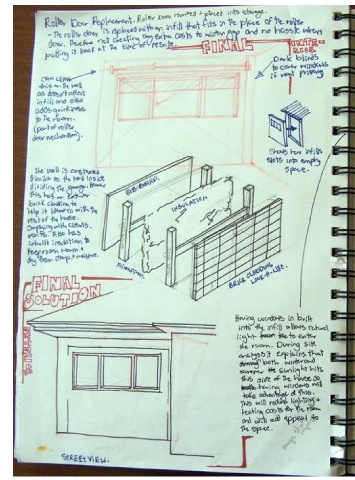 Roller Door Replacement. Roller Door removed + placed into storage.
- the roller door is replaced with an infill that fits in the place of the roller
door. Therefore not creating any extra costs to and no hassle when
putting it back at the time of resale.
FINAL
INTERIOR
Dark blinds
to cover windows
if want privacy
CAN LEAVE
this on the wall
as doesn't affect
infill and also
adds quirkiness
to the room.
(part of roller
door mechanism).
Shows how infill
slots into empty
space.
The wall is constructed
similar to the wall inside
dividing the garage.
this has an exterior
brick cladding to
help it blend in with the
rest of the house.
complying with clients
wants. Also has
inbuilt insulation to
keep room warm +
dry from damp + moisture.
GIB-BOARD.
INSULATION
Aluminium
BRICK CLADDING
LOOK-A-LIKE.
FINAL
SOLUTION
EXTERIOR
Having windows in built
into the infill allows natural
light to enter
the room. During site
analysis it explains that
both winter and
summer the sunlight hits
this side of the house so
having windows will
take advantage of this.
This will reduce lighting +
heating costs for the room
and will add appeal to
the space.
STREET VIEW.